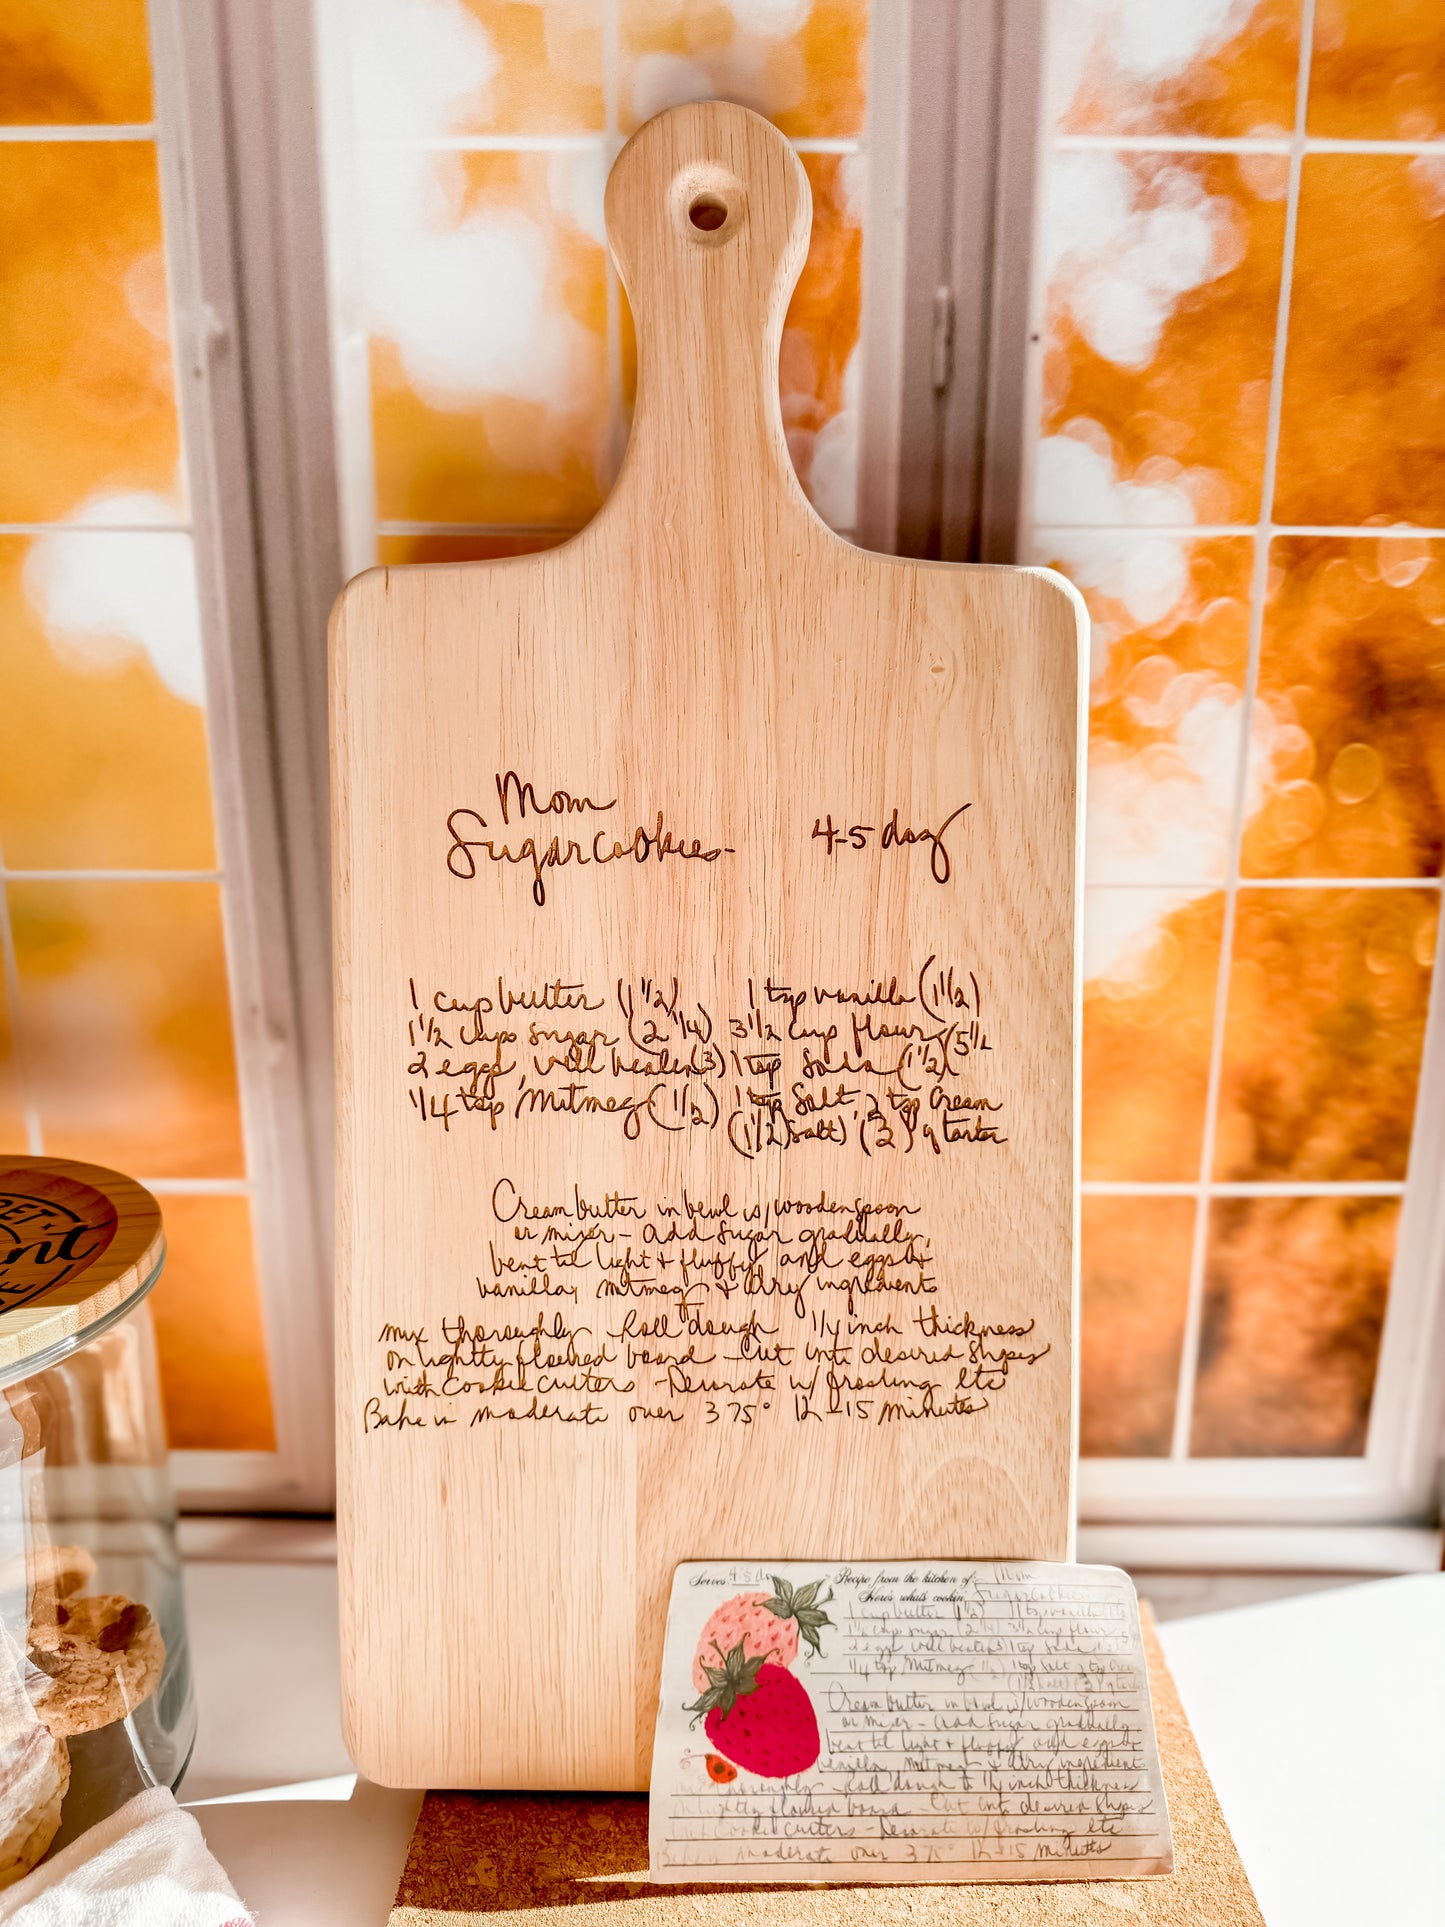 Mom
Sugar Cookies - 4-5 doz
1 cup butter (1 1/2) 1 tsp vanilla (1 1/2)
1 1/2 cups sugar (2 1/4) 3 1/2 cup flour (5 1/2
2 eggs, well beaten (3) 1 tsp Soda (1 1/2)
1/4 tsp Nutmeg (1/2) 1 tsp Salt, 2 tsp Cream
(1 1/2 Salt) (3) of tarter
Cream butter in bowl w/ wooden spoon
or mixer - add sugar gradually,
beat til light & fluffy add eggs &
vanilla, nutmeg & dry ingredients
mix thoroughly Roll dough 1/4 inch thickness
on lightly floured board - Cut into desired shapes
with cookie cutters - Decorate w/ frosting etc
Bake in moderate oven 375° 12-15 minutes
Serves 4-5 doz Recipe from the kitchen of: Mom
Here's what's cookin' Sugar Cookies
1 cup butter (1 1/2) 1 tsp vanilla (1 1/2
1 1/2 cups sugar (2 1/4) 3 1/2 cup flour
2 eggs well beaten (3) 1 tsp Soda (1 1/2) 5 1/2
1/4 tsp Nutmeg (1/2) 1 tsp Salt, 2 tsp Cream
(1 1/2 Salt) (3) of tarter
Cream butter in bowl w/ wooden spoon
or mixer - add sugar gradually
beat til light & fluffy add eggs &
vanilla, nutmeg & dry ingredients
thoroughly - Roll dough to 1/4 inch thickness
on lightly floured board - Cut into desired shapes
with cookie cutters - Decorate w/ frosting etc
Bake in moderate oven 375° 12-15 minutes